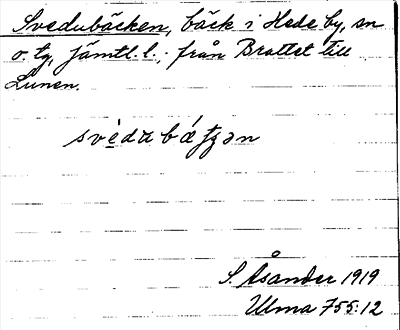 Svedubäcken, bäck i Hede by, sn
o. tg, Jämtl. l.; från Brattet till
Lunen.
svèda bǽʈʂən
S. Åsander 1919
Ulma 755:12